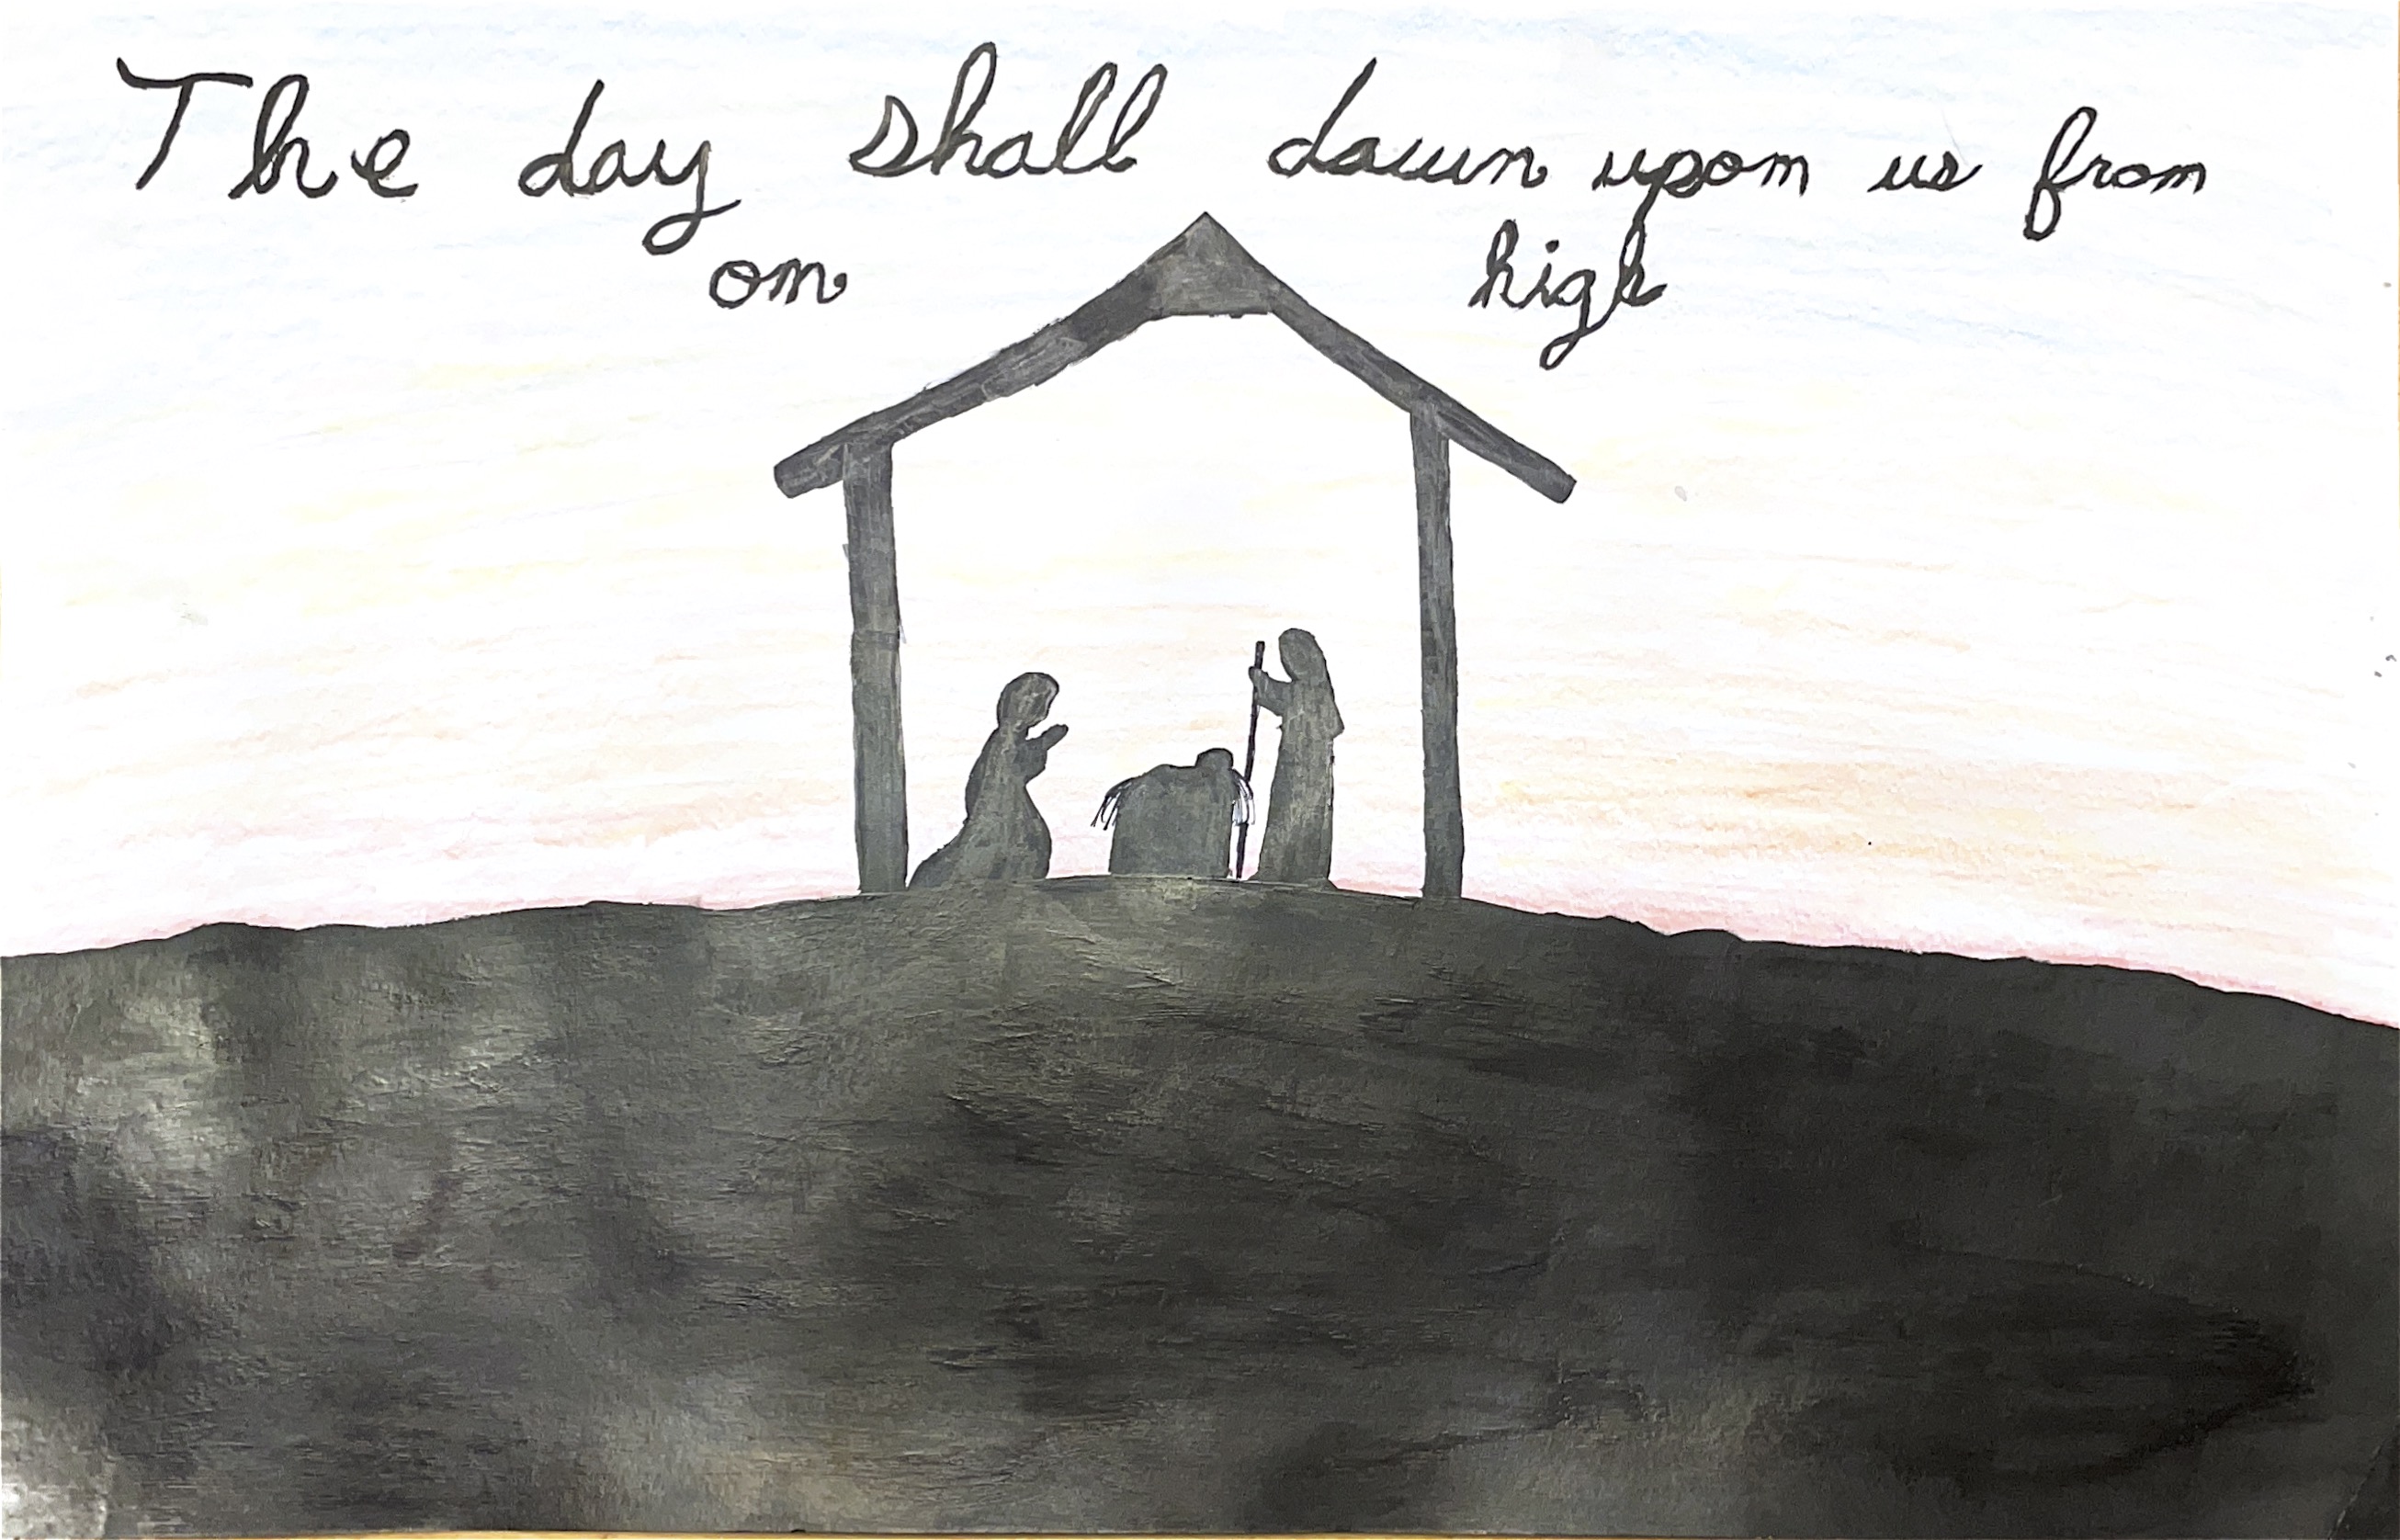 The day shall dawn upon us from
on high